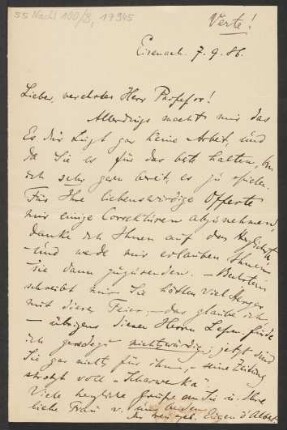 55 Nachl 100/B, 17945
Verte!
Eisenach. 7.9.86.
Lieber, verehrter Herr Professor!
Allerdings macht mir das
Es dur liegt gar keine Arbeit, und
da Sie es für das beste halten, bin
ich sehr gern bereit es zu spielen.
Für Ihre liebenswürdige Offerte
mir einige Correkturen abzunehmen,
danke ich Ihnen auf das
und werde mir erlauben Ihnen
Sie dann zuzusenden. — Bechstein
schreibt mir Sie hätten viel Aerger
mit dieser Feier — das glaube ich
— übrigens diesen Herrn Lessm. finde
ich geradezu nichtswürdig, jetzt sind
Sie gar nichts für ihn, seine Zeitung
strotzt voll "Scharwenka"
Viele herzliche Grüße an Sie u. Ihre
liebe Frau v.
Eugen d'Albert